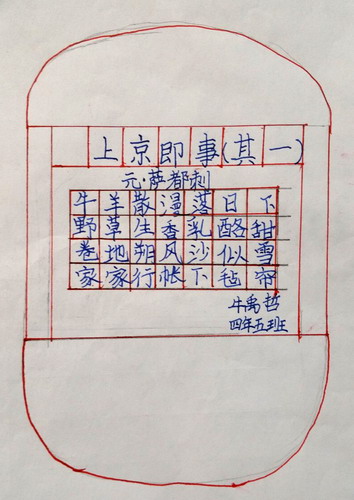 上京即事(其一)
元·萨都刺
牛羊散漫落日下
野草生香乳酪甜
卷地朔风沙似雪
家家行帐下毡帘
牛禹哲
四年五班